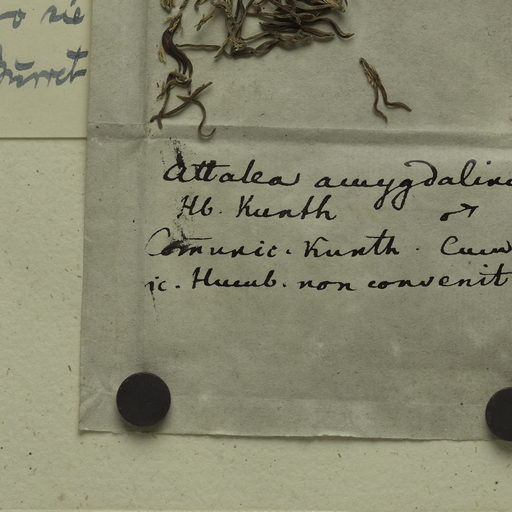 Burret
Attalea amygdalina
Hb. Kunth ♂
Comunic. Kunth. Cum
ic. Humb. non convenit